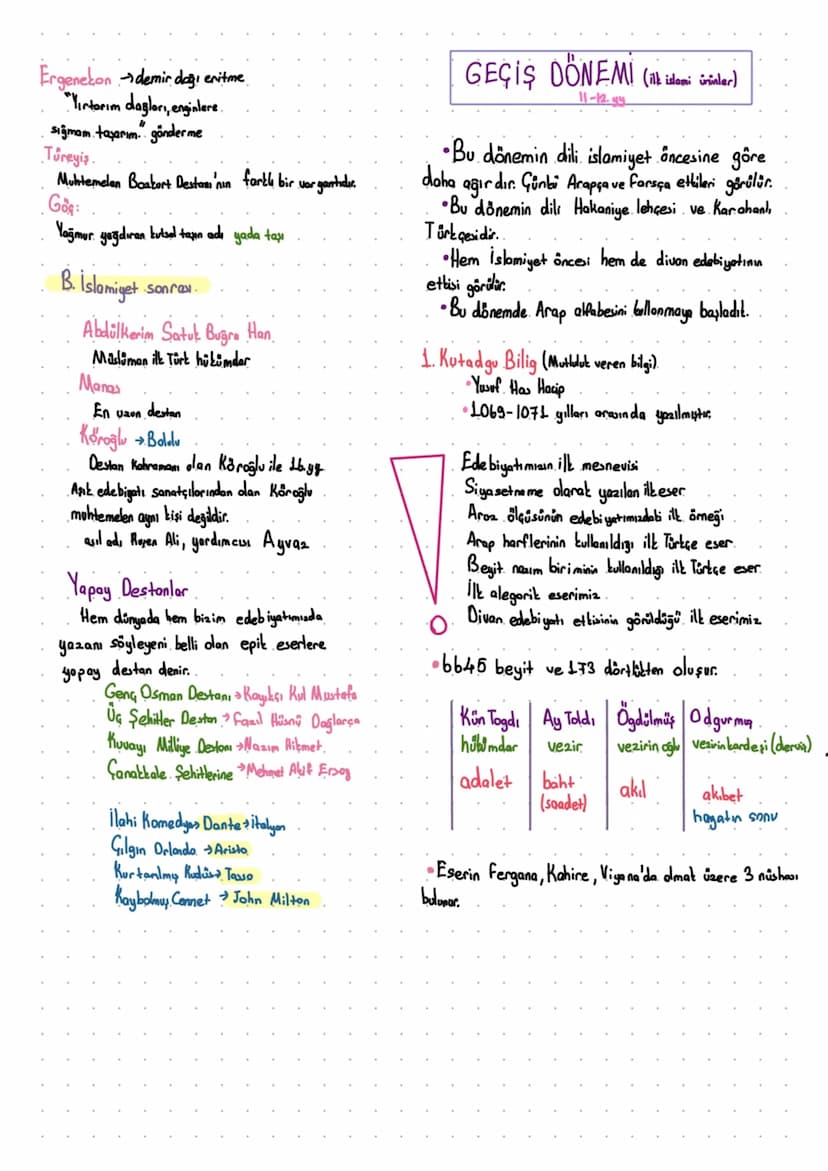 Ergenekon → demir dağı eritme
"Yırtarım dağları, enginlere
sığmam taşarım." gönderme
Türeyiş.
Muhtemelen Bozkurt Destanı'nın farklı bir varyantıdır.
Göç:
Yağmur yağdıran kutsal taşın adı yada taşı
B. İslamiyet sonrası
Abdülkerim Satuk Buğra Han
Müslüman ilk Türk hükümdar
Manas
En uzun destan
Köroğlu → Boldu
Destan Kahramanı olan Köroğlu ile 16.yy
Aşık edebiyatı sanatçılarından olan Köroğlu
muhtemelen aynı kişi değildir.
asıl adı Ruşen Ali, yardımcısı Ayvaz
Yapay Destanlar
Hem dünyada hem bizim edebiyatımızda
yazanı söyleyeni belli olan epik eserlere
yapay destan denir.
Genç Osman Destanı → Kayıkçı Kul Mustafa
Üç Şehitler Destanı → Fazıl Hüsnü Dağlarca
Kuvayı Milliye Destanı → Nazım Hikmet
Çanakkale Şehitlerine → Mehmet Akif Ersoy
İlahi Komedya → Dante → İtalyan
Çılgın Orlando → Aristo
Kurtarılmış Kudüs → Tasso
Kaybolmuş Cennet → John Milton
GEÇİŞ DÖNEMİ (ilk islami ürünler)
11-12. yy
• Bu dönemin dili islamiyet öncesine göre
daha ağırdır. Çünkü Arapça ve Farsça etkileri görülür.
• Bu dönemin dili Hakaniye lehçesi ve Karahanlı
Türkçesidir.
• Hem İslamiyet öncesi hem de divan edebiyatının
etkisi görülür.
• Bu dönemde Arap alfabesini kullanmaya başladık.
1. Kutadgu Bilig (Mutluluk veren bilgi)
• Yusuf Has Hacip
• 1069-1071 yılları arasında yazılmıştır.
Edebiyatımızın ilk mesnevisi
Siyasetname olarak yazılan ilk eser
Aruz ölçüsünün edebiyatımızdaki ilk örneği
Arap harflerinin kullanıldığı ilk Türkçe eser
Beyit nazım biriminin kullanıldığı ilk Türkçe eser
İlk alegorik eserimiz
Divan edebiyatı etkisinin görüldüğü ilk eserimiz
• 6645 beyit ve 173 dörtlükten oluşur.
Kün Togdı Ay Toldı Ögdülmüş Odgurmuş
hükümdar vezir vezirin oğlu vezirin kardeşi (derviş)
adalet baht akıl akıbet
(saadet) hayatın sonu
• Eserin Fergana, Kahire, Viyana'da olmak üzere 3 nüshası
bulunur.